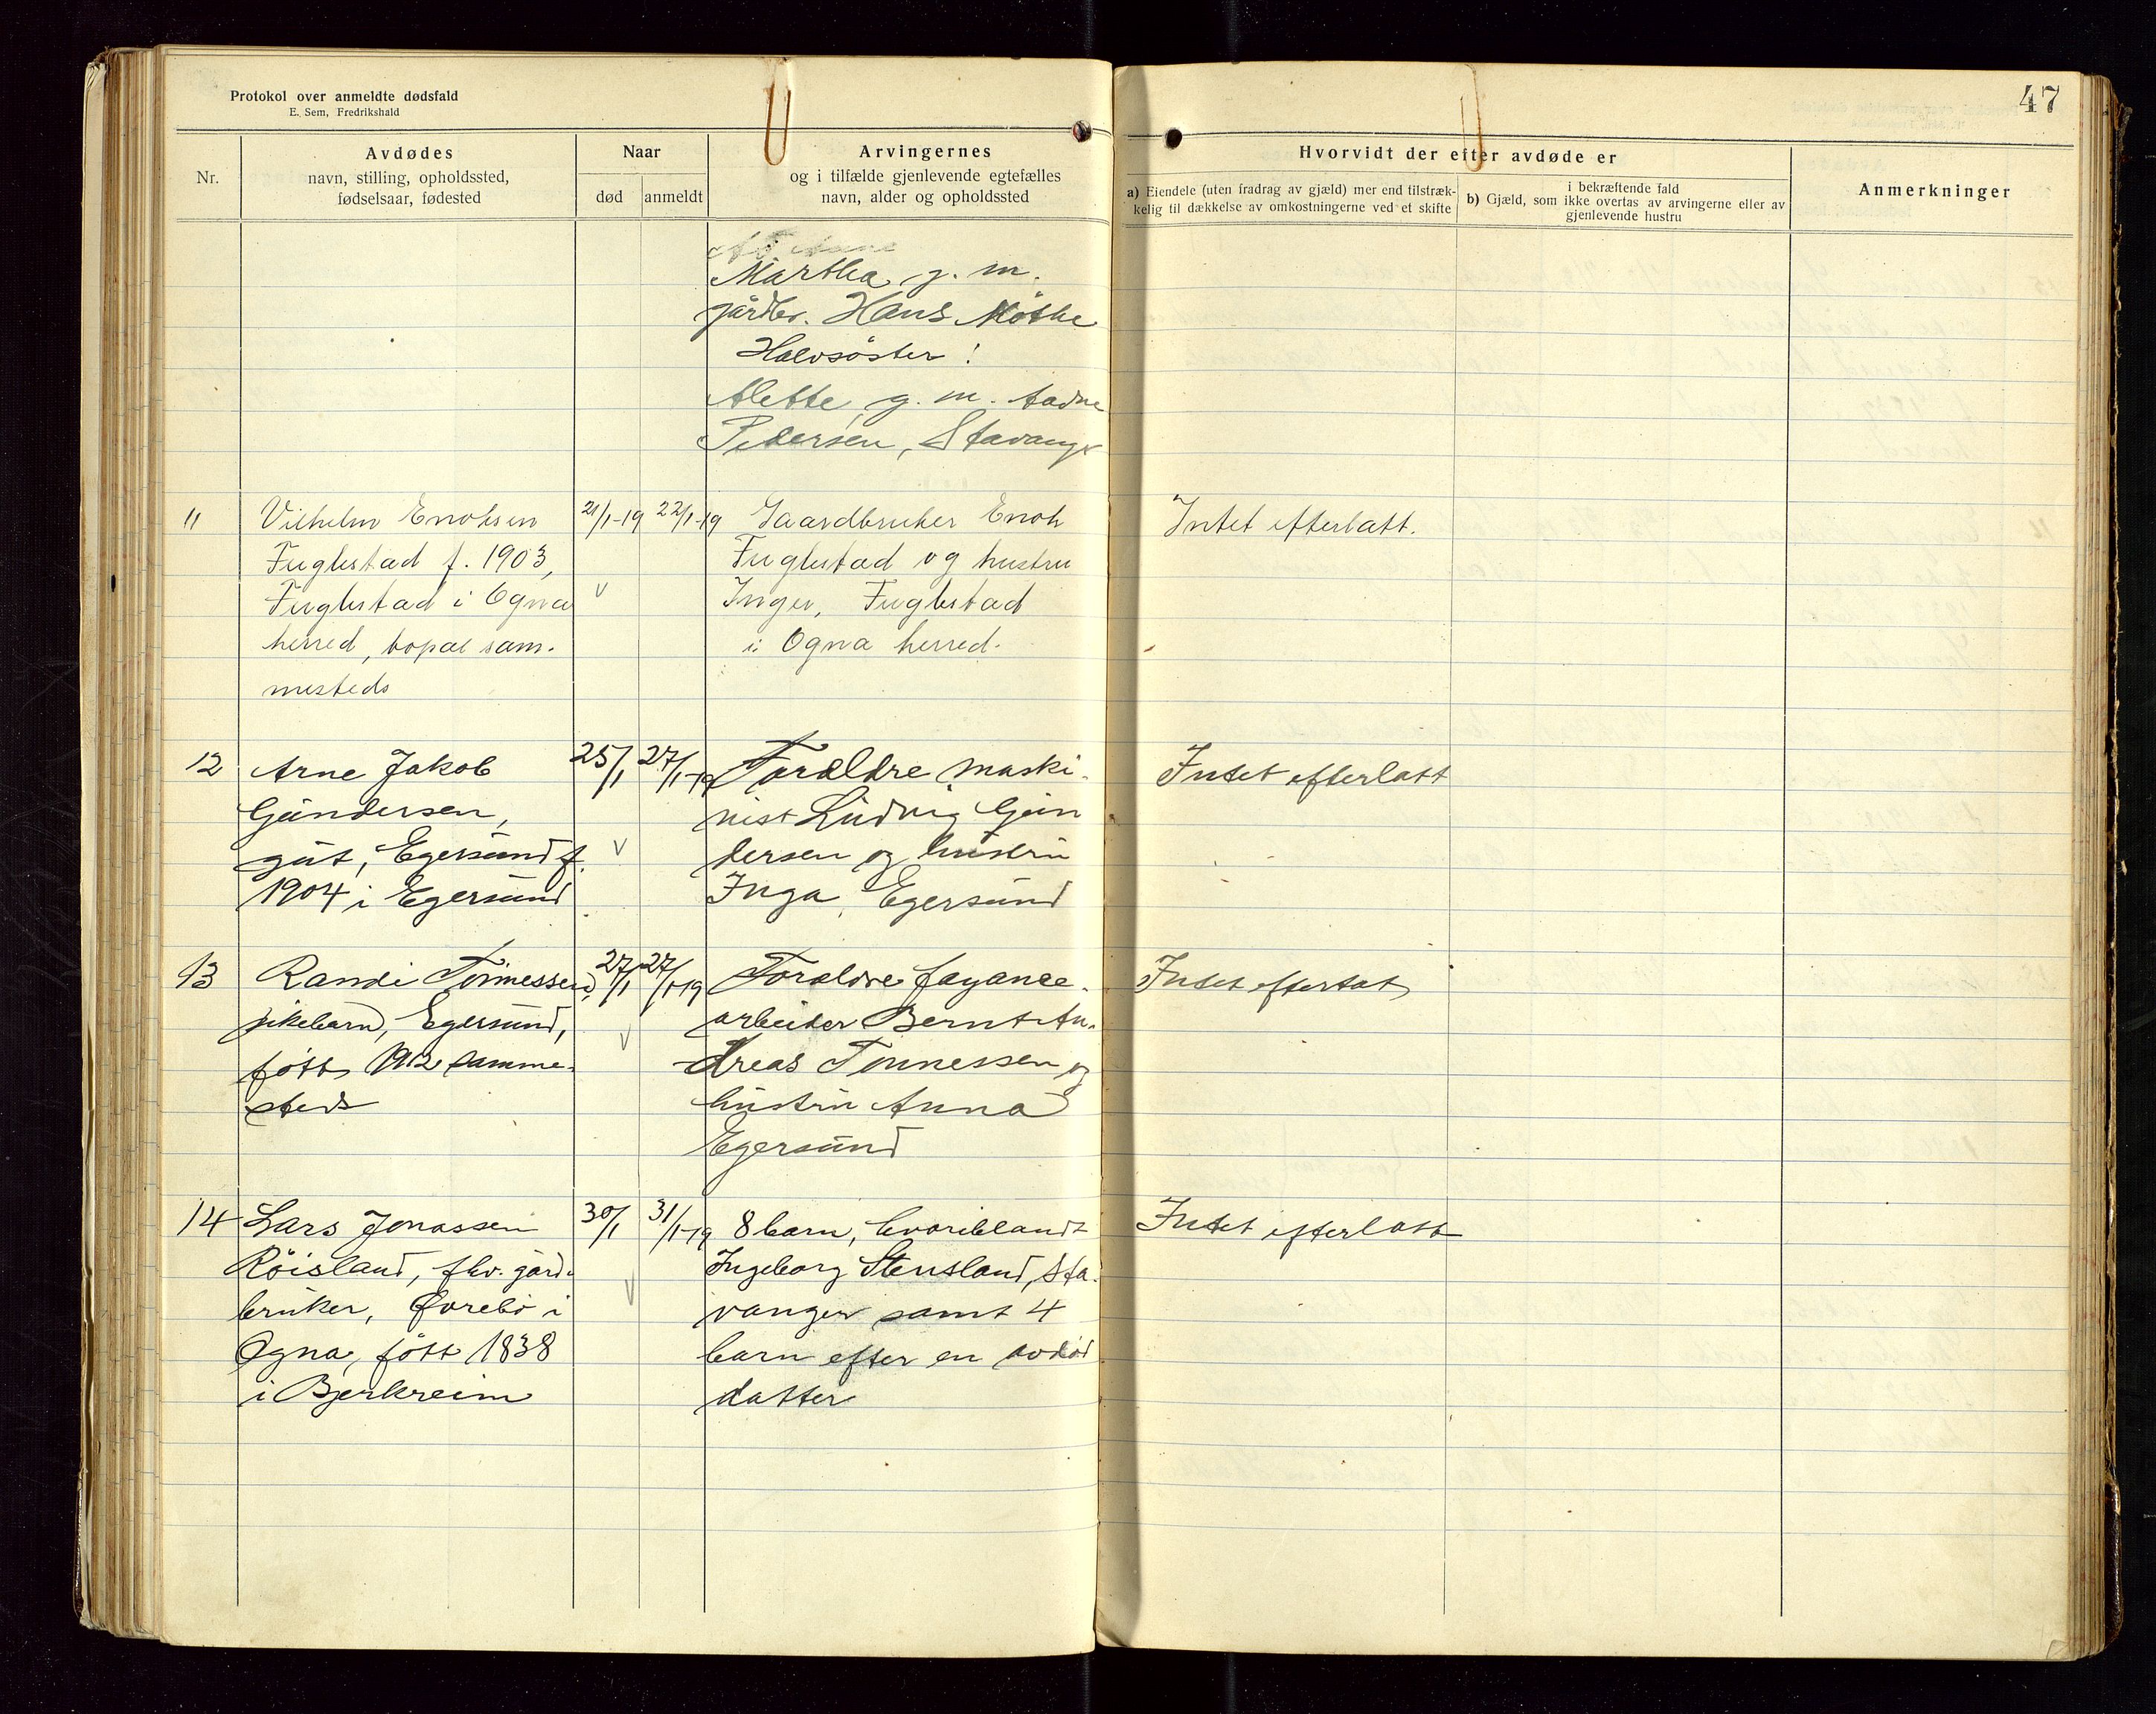 47
Protokol over anmeldte dødsfald
E. Sem, Fredrikshald
Nr.
Avdødes
navn, stilling, opholdssted,
fødselsaar, fødested
Naar
død
anmeldt
Arvingernes
og i tilfælde gjenlevende egtefælles
navn, alder og opholdssted
Hvorvidt der efter avdøde er
a) Eiendele (uten fradrag av gjæld) mer end tilstræk-
kelig til dækkelse av omkostningerne ved et skifte
i bekræftende fald
b) Gjæld, som ikke overtas av arvingerne eller av
gjenlevende hustru
Anmerkninger
Martha g. m.
gårdbr. Hans
Halvsöster:
Alette, g. m. Aadne
Pedersen, Stavanger
11
Vilhelm Enoksen
Fuglestad f. 1903,
Fuglestad i Ogna
herred, bopæl sam-
mesteds
21/1-19
22/1-19
Gaardbruker Enok
Fuglestad og hustru
Inger, Fuglestad
i Ogna herred.
Intet efterlatt.
12
Arne Jakob
Gundersen,
gut, Egersund f.
1904 i Egersund
25/1
27/1-19
Foreldre maski-
nist Ludvig Gun
dersen og hustru
Inga, Egersund
Intet efterlatt
13
Randi Tönnessen,
pikebarn, Egersund,
fött 1912 samme-
steds
27/1
27/1-19
Foreldre fayance-
arbeider Bernt An-
dreas Tönnessen og
hustru Anna
Egersund
Intet efterlatt
14
Lars Jonassen
Röisland, fhv. gård-
bruker, Qvrebö i
Ogna, fött 1838
i Bjerkreim
30/1
31/1-19
8 barn, hvoriblandt
Ingeborg Stensland, Sta-
vanger samt 4
barn efter en avdöd
datter
Intet efterlatt